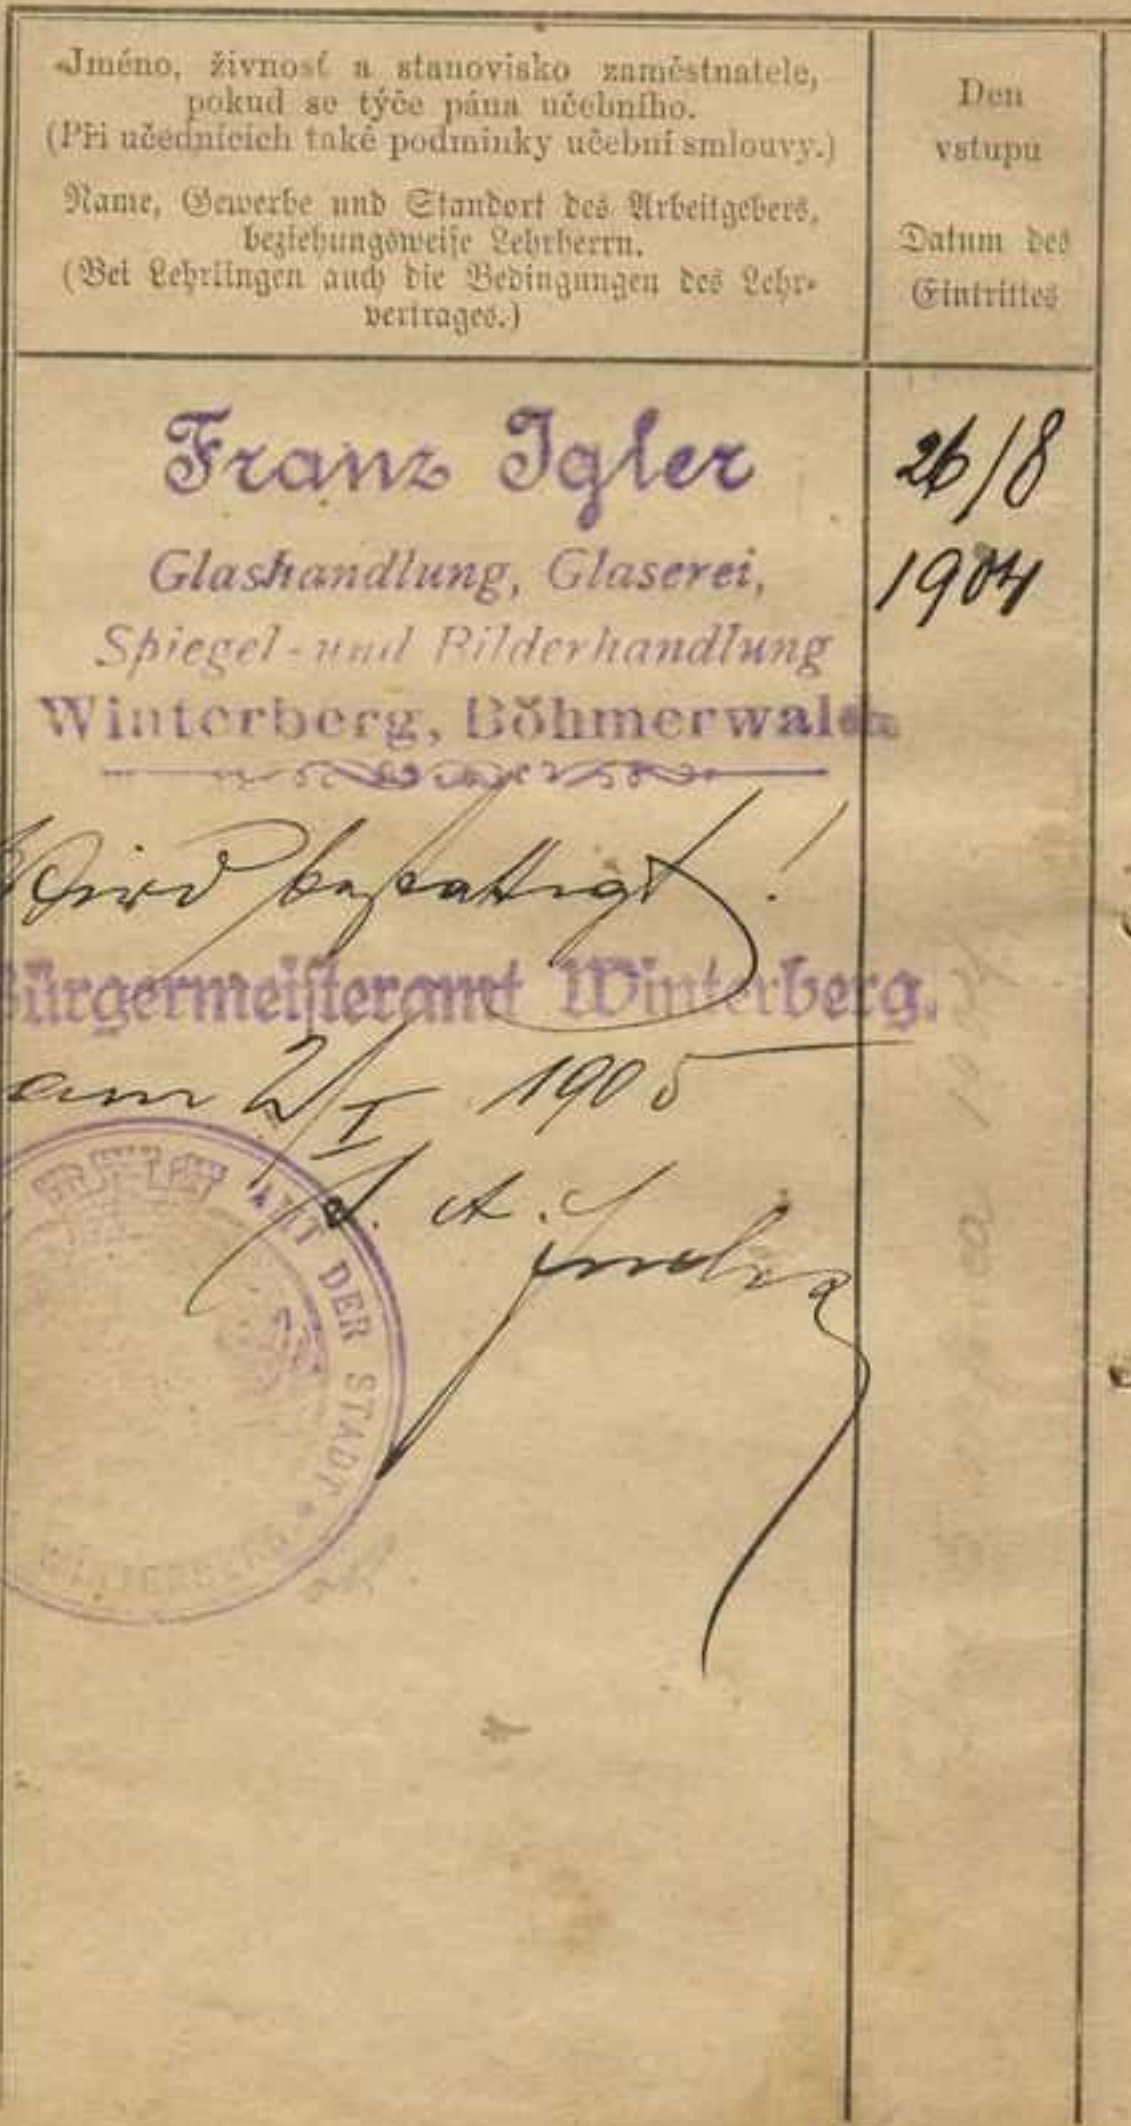 Jméno, živnosť a stanovisko zaměstnatele,
pokud se týče pána učebního.
(Při učednících také podmínky učební smlouvy.)
Name, Gewerbe und Standort des Arbeitgebers,
beziehungsweise Lehrherrn.
(Bei Lehrlingen auch die Bedingungen des Lehr-
vertrages.)
Den
vstupu
Datum des
Eintrittes
Franz Igler
Glashandlung, Glaserei,
Spiegel- und Bilderhandlung
Winterberg, Böhmerwald.
26/8
1904
Wird bestättigt!
Bürgermeisteramt Winterberg.
am 2/I 1905
I. A.
AMT DER STADT * WINTERBERG